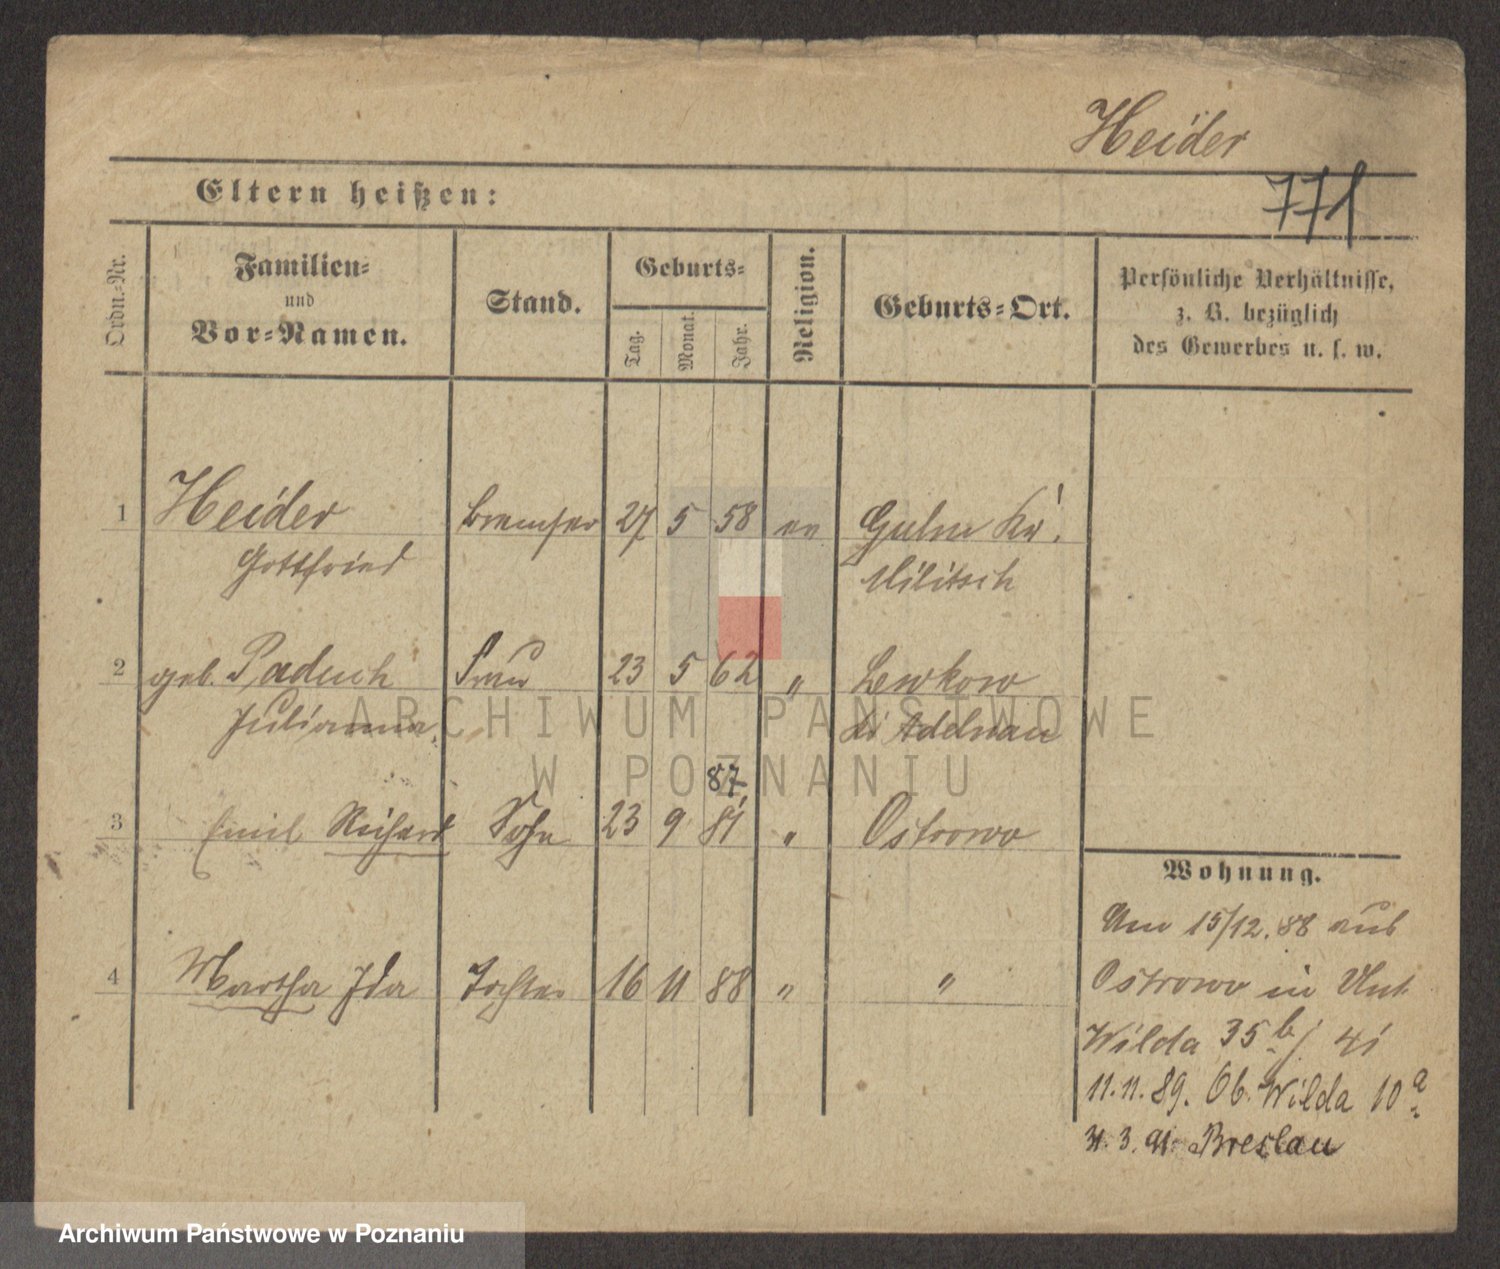 Heider
771
Eltern heißen:
Ordn.-Nr.
Familien-
und
Vor-Namen.
Stand.
Geburts-
Tag.
Monat.
Jahr.
Religion.
Geburts-Ort.
Persönliche Verhältnisse,
z. B. bezüglich
des Gewerbes u. s. w.
1 Heider Bremser 27 5 58 ev Gulm Kr.
Gottfried Militsch
2 geb. Paduch Frau 23 5 62 " Lewkow
Julianna Adelnau
87
3 Emil Richard Sohn 23 9 81 " Ostrowo
4 Martha Ida Tochter 16 11 88 " "
Wohnung.
Am 15/12.88 aus
Ostrowo in Unt.
Wilda 35 b/
11.11.89. Ob. Wilda 10 a
31.3.91. Breslau
ARCHIWUM PAŃSTWOWE
W POZNANIU
Archiwum Państwowe w Poznaniu